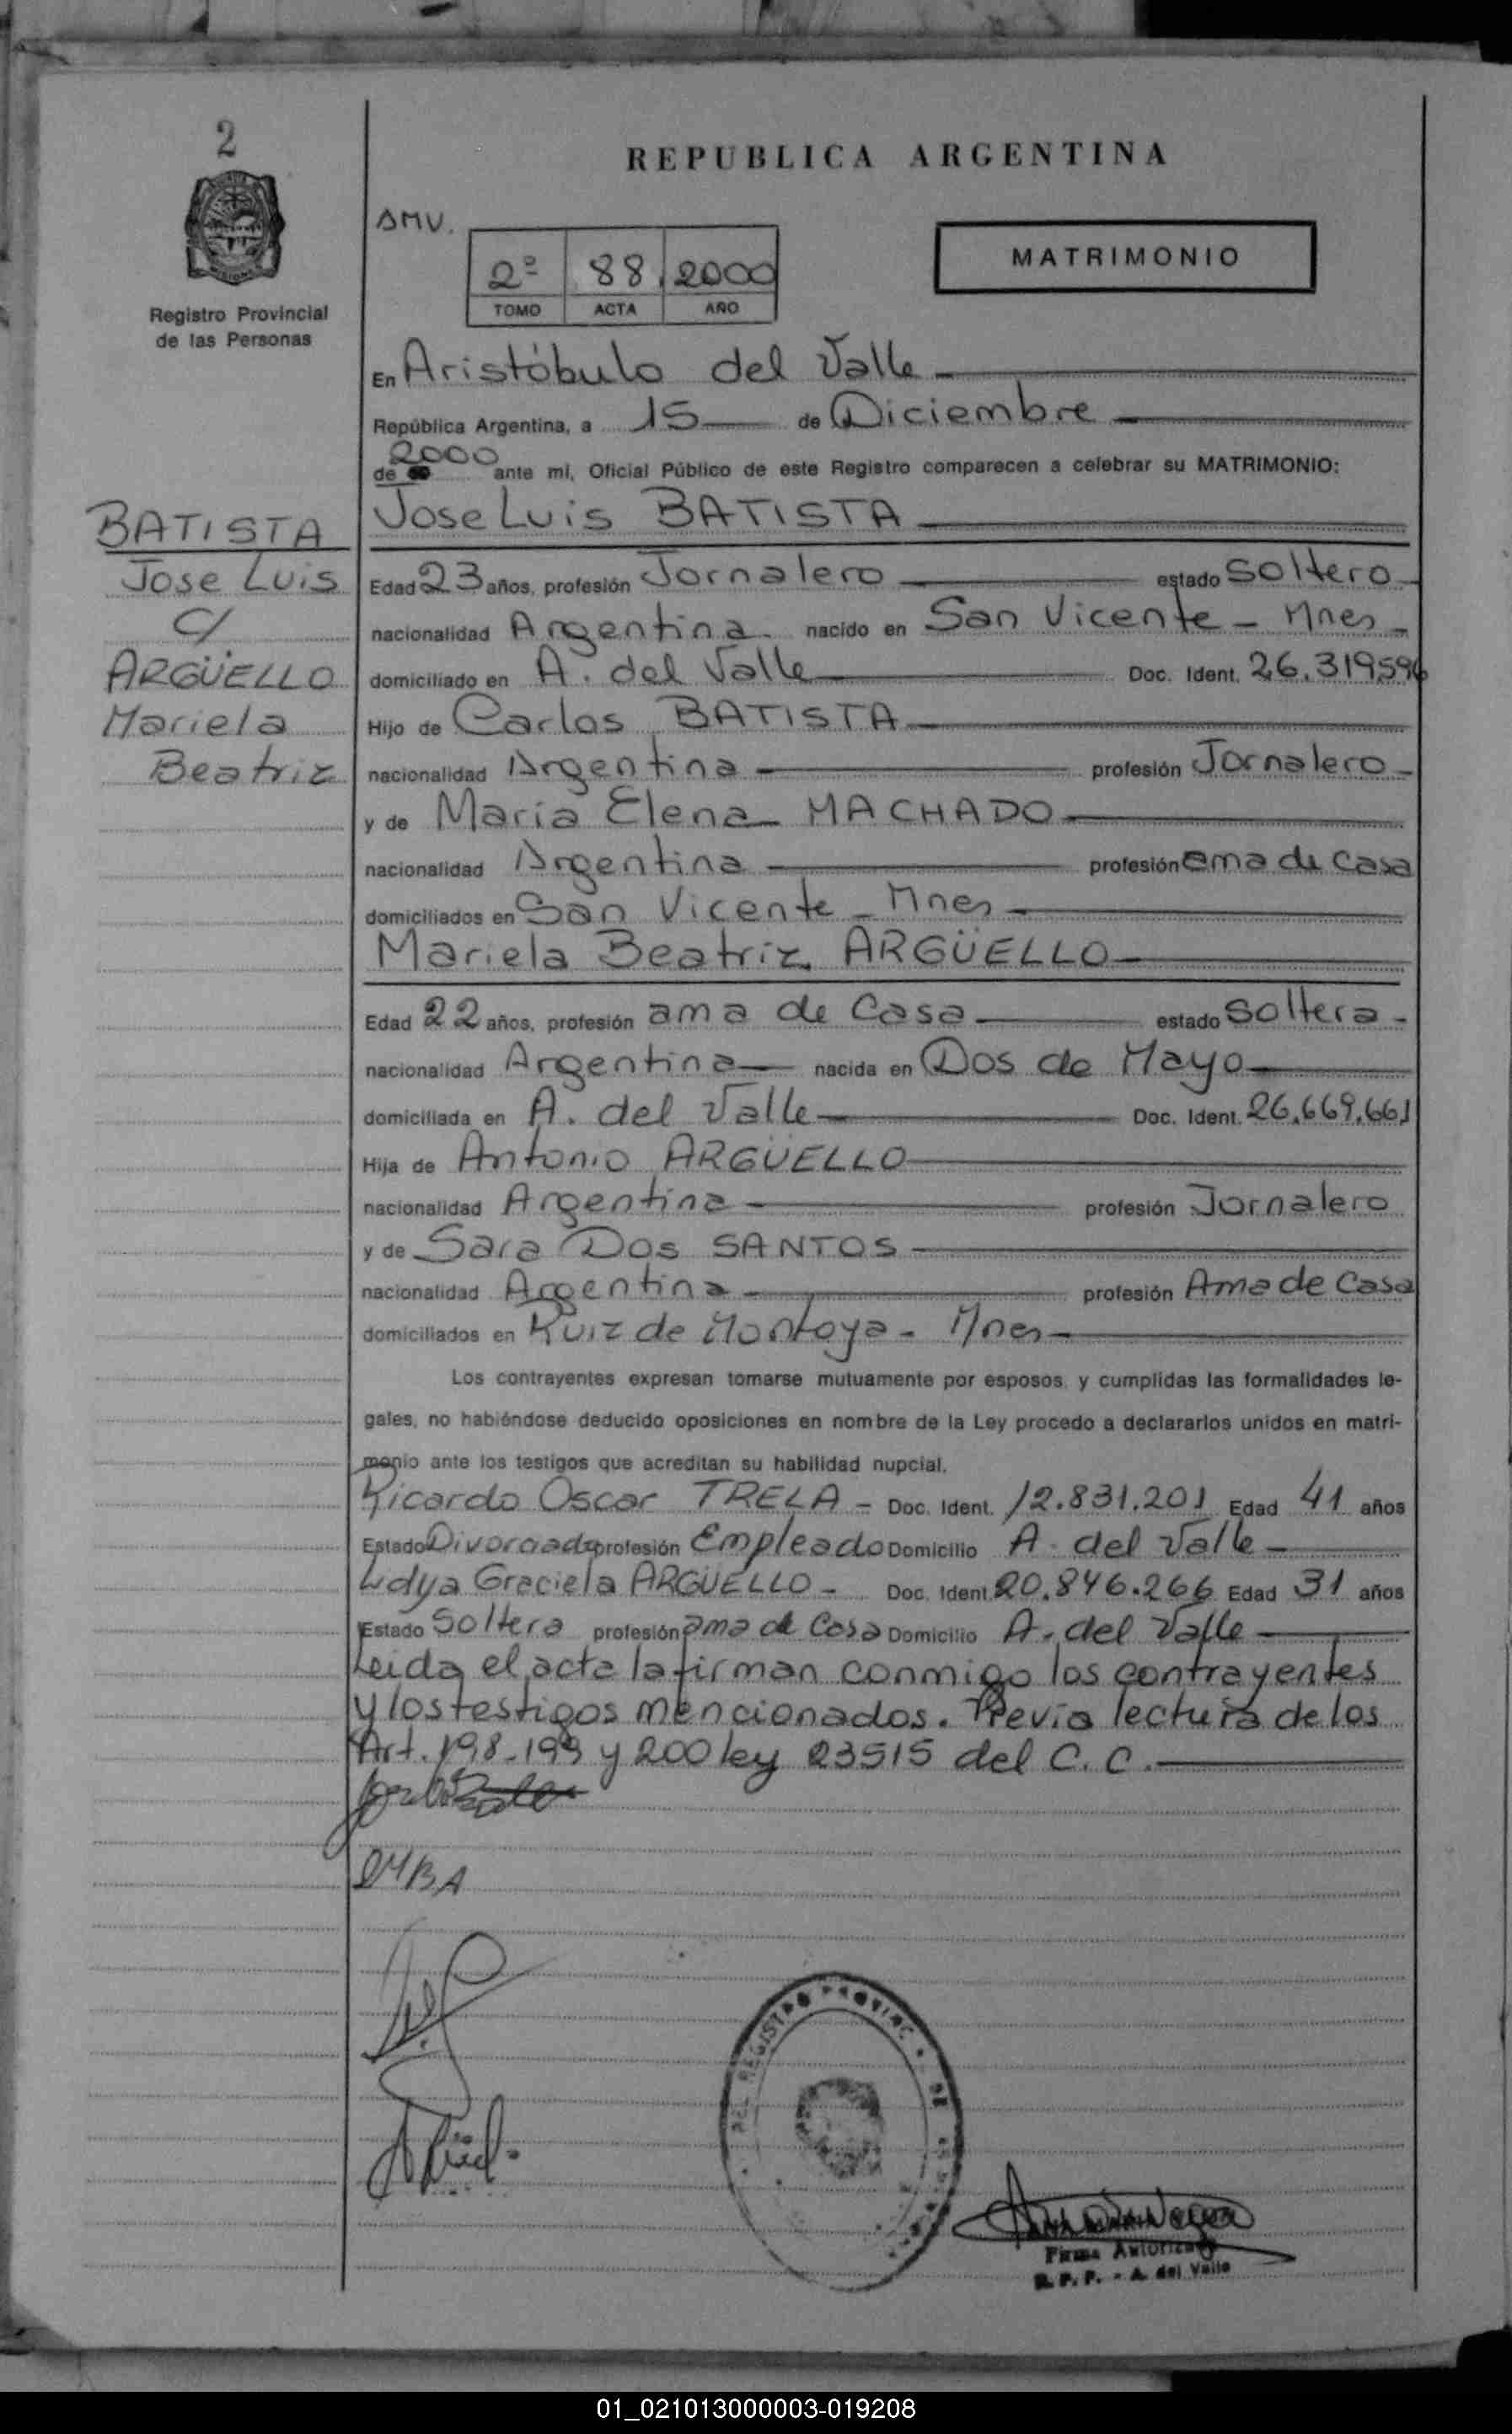 2
REPUBLICA ARGENTINA
AMV.
MATRIMONIO
2º 88 2000
TOMO ACTA AÑO
Registro Provincial
de las Personas
En Aristóbulo del Valle
República Argentina, a 15 de Diciembre
de 2000 ante mi, Oficial Público de este Registro comparecen a celebrar su MATRIMONIO:
BATISTA
Jose Luis
C/
ARGÜELLO
Mariela
Beatriz
Jose Luis BATISTA
Edad 23 años, profesión Jornalero estado Soltero
nacionalidad Argentina nacido en San Vicente - Mnes
domiciliado en A. del Valle Doc. Ident. 26.319.596
Hijo de Carlos BATISTA
nacionalidad Argentina profesión Jornalero
y de María Elena MACHADO
nacionalidad Argentina profesión ama de casa
domiciliados en San Vicente - Mnes
Mariela Beatriz ARGÜELLO
Edad 22 años, profesión ama de casa estado Soltera
nacionalidad Argentina nacida en Dos de Mayo
domiciliada en A. del Valle Doc. Ident. 26.669.661
Hija de Antonio ARGÜELLO
nacionalidad Argentina profesión Jornalero
y de Sara Dos SANTOS
nacionalidad Argentina profesión Ama de Casa
domiciliados en Ruiz de Montoya - Mnes
Los contrayentes expresan tomarse mutuamente por esposos, y cumplidas las formalidades le-
gales, no habiéndose deducido oposiciones en nombre de la Ley procedo a declararlos unidos en matri-
monio ante los testigos que acreditan su habilidad nupcial.
Ricardo Oscar TRELA - Doc. Ident. 12.831.201 Edad 41 años
Estado Divorciado profesión Empleado Domicilio A. del Valle
Lidya Graciela ARGÜELLO - Doc. Ident. 20.846.266 Edad 31 años
Estado Soltera profesión ama de Casa Domicilio A. del Valle
Leida el acta la firman conmigo los contrayentes
y los testigos mencionados. Previa lectura de los
Art. 198-199 y 200 ley 23515 del C. C.
REGISTRO PROVINC
Firma Autorizada
R. P. P. - A. del Valle
01_021013000003-019208